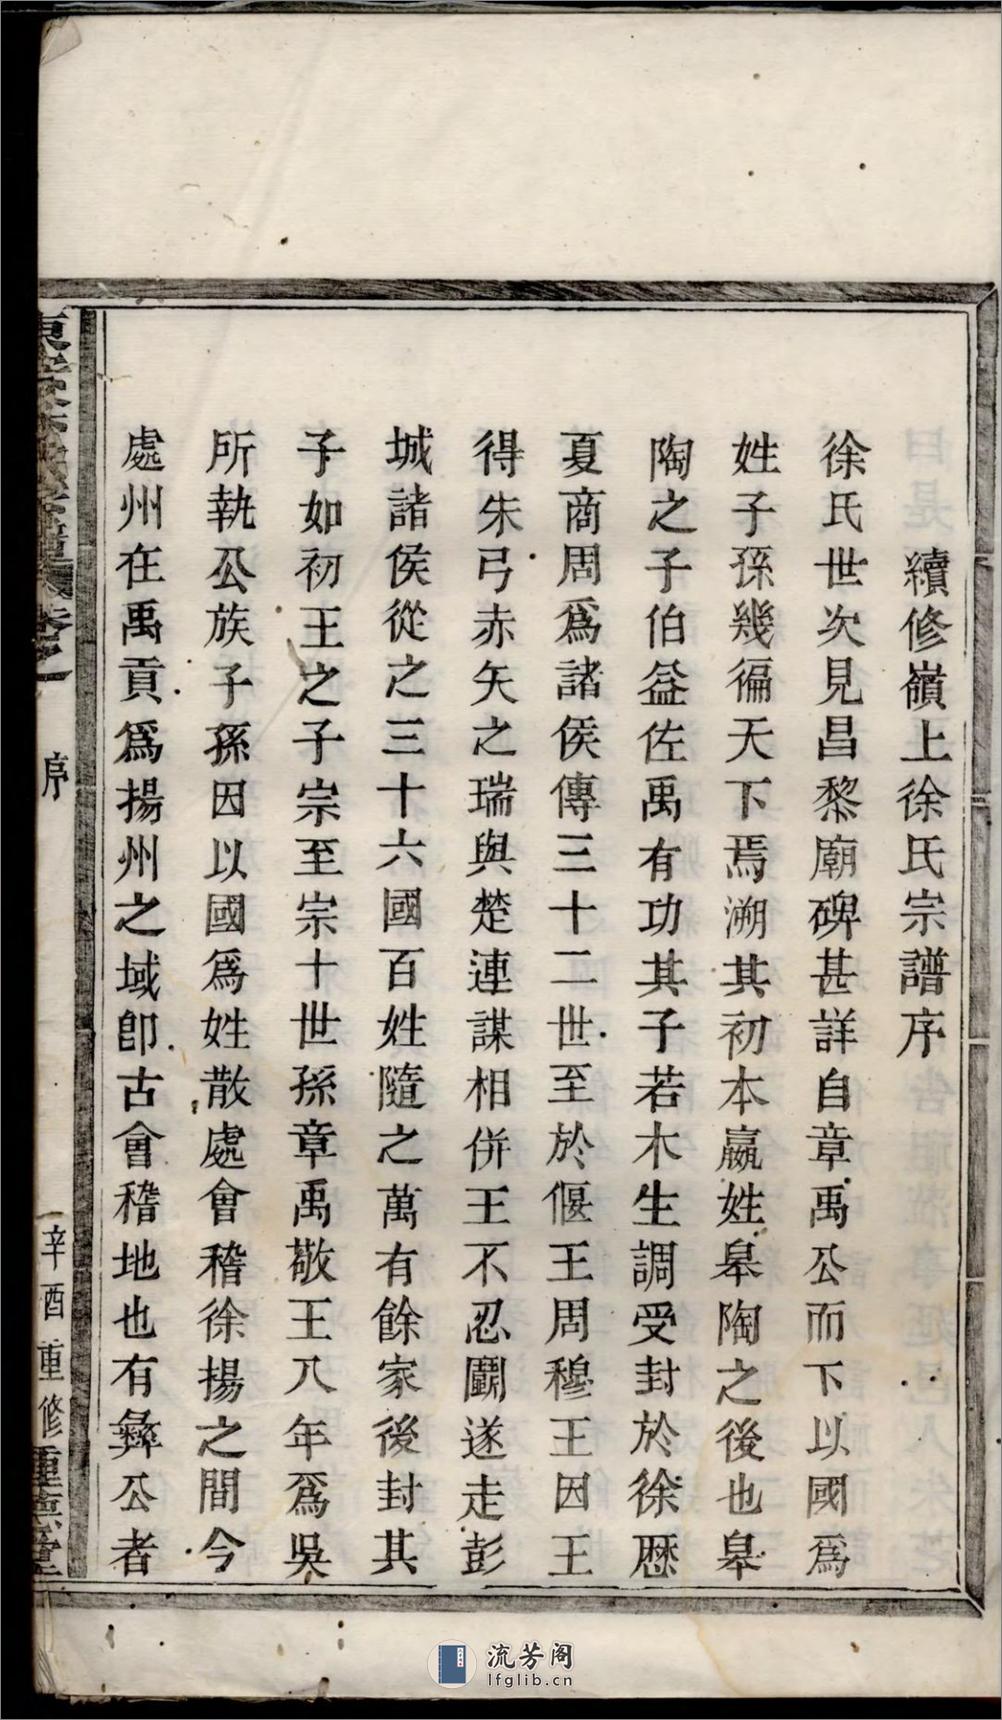 續修嶺上徐氏宗譜序
徐氏世次見昌黎廟碑甚詳自章禹公而下以國爲
姓子孫幾徧天下焉溯其初本嬴姓皋陶之後也皋
陶之子伯益佐禹有功其子若木生調受封於徐歷
夏商周爲諸侯傳三十二世至於偃王周穆王因王
得朱弓赤矢之瑞與楚連謀相併王不忍鬭遂走彭
城諸侯從之三十六國百姓隨之萬有餘家後封其
子如初王之子宗至宗十世孫章禹敬王八年爲吳
所執公族子孫因以國爲姓散處會稽徐揚之間今
處州在禹貢爲揚州之域卽古會稽地也有彝公者
序
辛酉重修
流芳阁
lfglib.cn